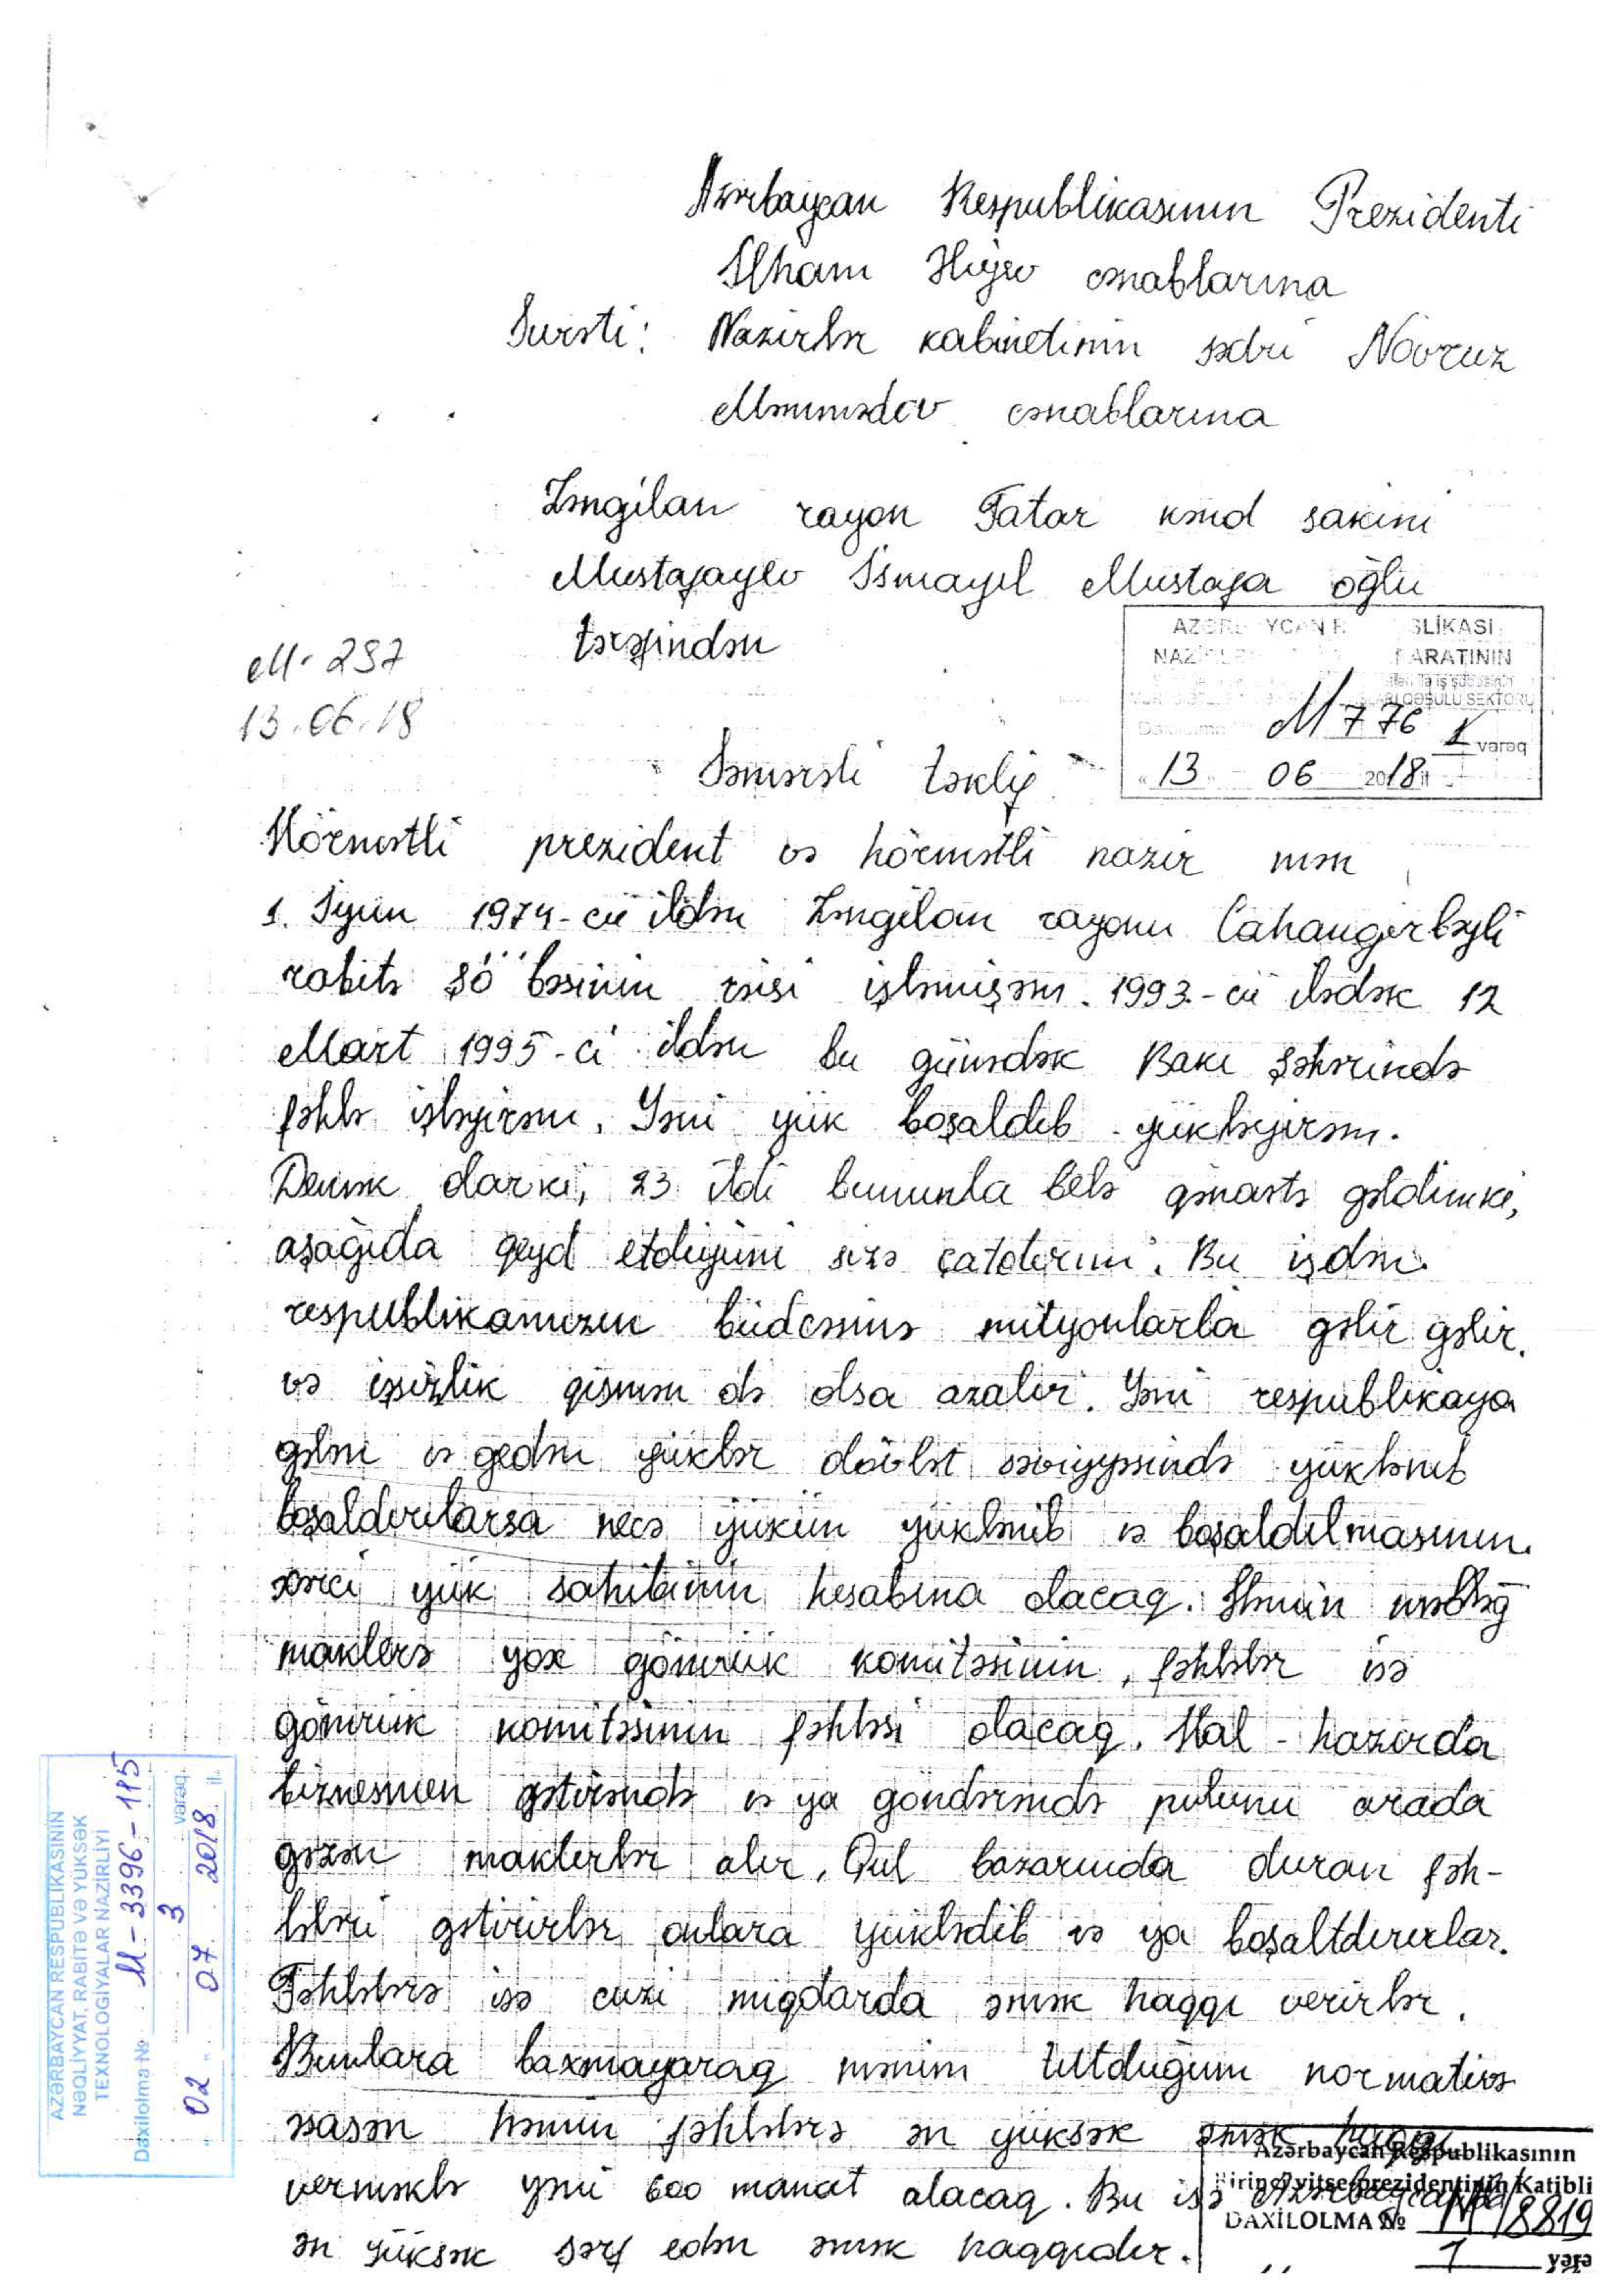 Azərbaycan Respublikasının Prezidenti
İlham Əliyev cənablarına
Surəti: Nazirlər kabinetinin sədri Novruz
Məmmədov cənablarına
Zəngilan rayon Tatar kənd sakini
Mustafayev İsmayıl Mustafa oğlu
tərəfindən
M-297
13.06.18
AZƏRBAYCAN RESPUBLİKASI
NAZİRLƏR APARATININ
QƏBULU SEKTORU
M 776 1 vərəq
"13" 06 2018 il
Səmərəli təklif
Hörmətli prezident və hörmətli nazir mən
1. İyun 1974-cü ildən Zəngilan rayonu Cahangirbəyli
rabitə şö'bəsinin rəisi işləmişəm. 1993-cü ilədək 12
Mart 1995-ci ildən bu günədək Bakı şəhərində
fəhlə işləyirəm. Yəni yük boşaldıb yükləyirəm.
Demək olarki, 23 ildi bununla belə qənaətə gəldimki,
aşağıda qeyd etdiyimi sizə çatdırım. Bu işdən
respublikamızın büdcəsinə milyonlarla gəlir gəlir.
və işsizlik qismən də olsa azalır. Yəni respublikaya
gələn və gedən yüklər dövlət səviyyəsində yüklənib
boşaldırılarsa necə yükün yüklənib və boşaldılmasının
xərci yük sahibinin hesabına olacaq. Həmin məbləğ
maklerə yox gömrük komitəsinin, fəhlələr isə
gömrük komitəsinin fəhləsi olacaq. Hal-hazırda
biznesmen gətirəndə və ya göndərəndə pulunu arada
gəzən maklerlər alır. Qul bazarında duran fəh-
lələri gətirirlər onlara yüklədib və ya boşaltdırırlar.
Fəhlələrə isə cuzi miqdarda əmək haqqı verirlər.
Bunlara baxmayaraq mənim tutduğum normativə
əsasən həmin fəhlələrə ən yüksək əmək haqqı
verməklə yəni 600 manat alacaq. Bu isə Azərbaycanda
ən yüksək sərf edən əmək haqqıdır.
AZƏRBAYCAN RESPUBLİKASININ
NƏQLİYYAT, RABİTƏ VƏ YÜKSƏK
TEXNOLOGİYALAR NAZİRLİYİ
Daxilolma № M-3396-115
3 vərəq
"02" 07 2018 il
Azərbaycan Respublikasının
Birinci vitse-prezidentinin Katibli
DAXİLOLMA № M18819
1 vərə